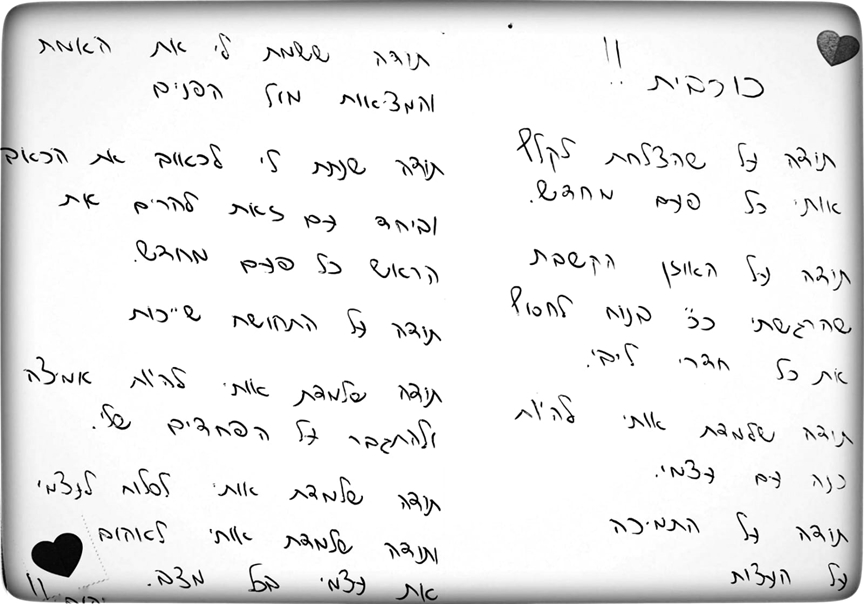 !!
כורבית !!
תודה על שהצלחת לקלף
אותי כל פעם מחדש.
תודה על האוזן הקשבת
שהרגשתי ככ בנוח לחשוף
את כל חדרי ליבי.
תודה שלמדת אותי להיות
כנה עם עצמי.
תודה על התמיכה
על העצות
תודה ששמת לי את האמת
והמציאות מול הפנים
תודה שנתת לי לכאוב את הכאוב
וביחד עם זאת להרים את
הראש כל פעם מחדש.
תודה על התחושת שייכות
תודה שלמדת אותי להיות אמיצה
ולהתגבר על הפחדים שלי.
תודה שלמדת אותי לסלוח לעצמי
ותודה שלמדת אותי לאהוב
את עצמי בכל מצב.
!!